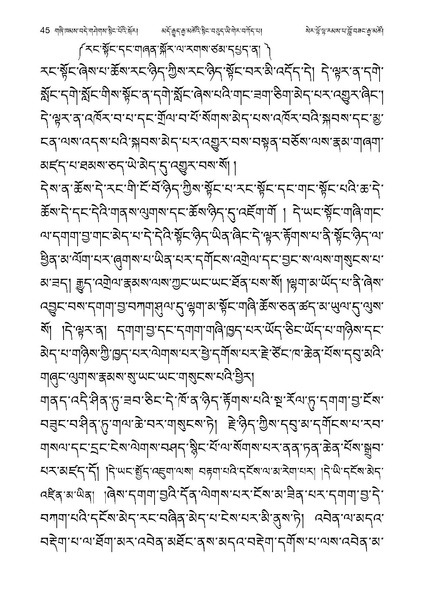 45 གཞི་ཁམས་བདེ་གཤེགས་སྙིང་པོའི་སྐོར། མདོ་རྒྱུད་རྒྱ་མཚོའི་སྙིང་བཅུད་ཡེ་གེར་བཀོད་པ། སེར་བྱེ་བློ་རྣམས་པ་བློ་བཟང་རྒྱ་མཚོ།
༼ རང་སྟོང་དང་གཞན་སྐོར་ལ་རགས་ཙམ་དཔྱད་ན། ༽
རང་སྟོང་ཞེས་པ་ཆོས་རང་ཉིད་ཀྱིས་རང་ཉིད་སྟོང་བར་མི་འདོད་དེ། དེ་ལྟར་ན་དགེ་
སློང་དགེ་སློང་གིས་སྟོང་ན་དགེ་སློང་ཞེས་པའི་གང་ཟག་ཅིག་མེད་པར་འགྱུར་ཞིང་།
དེ་ལྟར་ན་འཁོར་བ་པ་དང་གྲོལ་བ་པོ་སོགས་མེད་པས་འཁོར་བའི་སྐབས་དང་མྱ་
ངན་ལས་འདས་པའི་སྐབས་མེད་པར་འགྱུར་བས་བསྟན་བཅོས་ལས་རྣམ་གཞག་
མཛད་པ་ཐམས་ཅད་ཡེ་མེད་དུ་འགྱུར་བས་སོ། །
དེས་ན་ཆོས་དེ་རང་གི་ངོ་བོ་ཉིད་ཀྱིས་སྟོང་པ་རང་སྟོང་དང་གང་སྟོང་པའི་ཆ་དེ་
ཆོས་དེ་དང་དེའི་གནས་ལུགས་དང་ཆོས་ཉིད་དུ་འཇོག་གོ །དེ་ཡང་སྟོང་གཞི་གང་
ལ་དགག་བྱ་གང་མེད་པ་དེ་དེའི་སྟོང་ཉིད་ཡིན་ཞིང་དེ་ལྟར་རྟོགས་པ་ནི་སྟོང་ཉིད་ལ་
ཕྱིན་མ་ལོག་པར་ཞུགས་པ་ཡིན་པར་དགོངས་འགྲེལ་དང་བྱང་ས་ལས་གསུངས་པ་
མ་ཟད། རྒྱུད་འགྲེལ་རྣམས་ལས་ཀྱང་ཡང་ཡང་ཐོན་པས་སོ། །ལྷག་མ་ཡོད་པ་ནི་ཞེས་
འབྱུང་བས་དགག་བྱ་བཀག་ཤུལ་དུ་ལྷག་མ་སྟོང་གཞི་ཆོས་ཅན་ཚད་མ་ཡུལ་དུ་ལུས་
སོ། །དེ་ལྟར་ན། དགག་བྱ་དང་དགག་གཞི་ཁྱད་པར་ཡོད་ཅིང་ཡོད་པ་གཉིས་དང་
མེད་པ་གཉིས་ཀྱི་ཁྱད་པར་ལེགས་པར་ཕྱེ་དགོས་པར་རྗེ་ཙོང་ཁ་ཆེན་པོས་དབུ་མའི་
གཞུང་ལུགས་རྣམས་སུ་ཡང་ཡང་གསུངས་པའི་ཕྱིར།
གནད་འདི་ཤིན་ཏུ་ཟབ་ཅིང་དེ་ཁོ་ན་ཉིད་རྟོགས་པའི་སྔ་རོལ་ཏུ་དགག་བྱ་ངོས་
བཟུང་བ་ཤིན་ཏུ་གལ་ཆེ་བར་གསུངས་ཏེ། རྗེ་ཉིད་ཀྱིས་དབུ་མ་དགོངས་པ་རབ་
གསལ་དང་དྲང་ངེས་ལེགས་བཤད་སྙིང་པོ་ལ་སོགས་པར་ནན་ཏན་ཆེན་པོས་སྒྲུབ་
པར་མཛད་དོ། །དེ་ཡང་སྤྱོད་འཇུག་ལས། བརྟག་པའི་དངོས་ལ་མ་རེག་པར། །དེ་ཡི་དངོས་མེད་
འཛིན་མ་ཡིན། །ཞེས་དགག་བྱའི་དོན་ལེགས་པར་ངོས་མ་ཟིན་པར་དགག་བྱ་དེ་
བཀག་པའི་དངོས་མེད་རང་བཞིན་མེད་པ་ངེས་པར་མི་ནུས་ཏེ། འབེན་ལ་མདའ་
བརྡེག་པ་ལ་ཐོག་མར་འབེན་མཐོང་ནས་མདའ་བརྡེག་དགོས་པ་ལས་འབེན་མ་